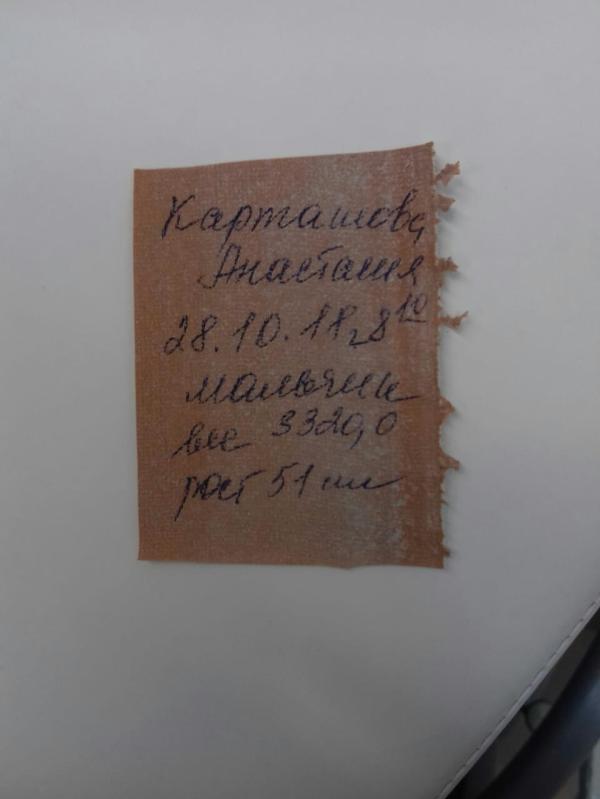 Карташова
Анастасия
28.10.18г 8 10
мальчик
вес 3320,0
рост 51 см